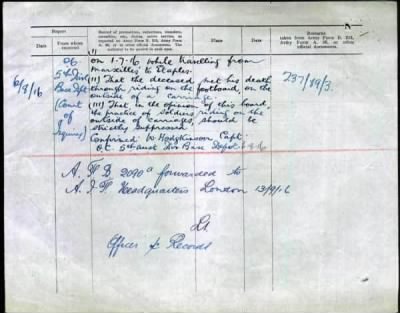 Report
Record of promotions, reductions, transfers,
casualties, etc., during active service, as
reported on Army Form B. 213, Army Form
A. 36, or in other official documents. The
authority to be quoted in each case.
Remarks
taken from Army Form B. 213,
Army Form A. 36, or other
official documents.
Date
From whom
received
Place
Date
on 1-7-16 while travelling from
Marseilles to Etaples.
6/8/16
OC
5th Div
Base Dept
(Court
of
Inquiry)
(II) That the deceased met his death
through riding on the footboard, on the
outside of a carriage.
(III) That in the opinion of this board,
the practice of soldiers riding on the
outside of carriages, should be
strictly suppressed.
Confirmed Hodgkinson Capt.
O.C. 5th Aust Div Base Depot
237/19/3.
A. F. B. 2090a forwarded to
A. I. F. Headquarters London 13/9/16
Lt
Officer i/c Records